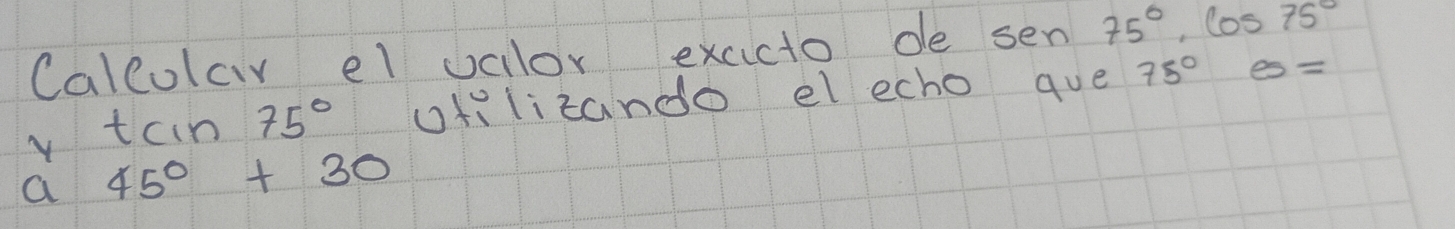 Calcular el valor exacto de sen 75°, Cos 75°
y tan 75° utilizando el echo que 75° es =
a 45° + 30